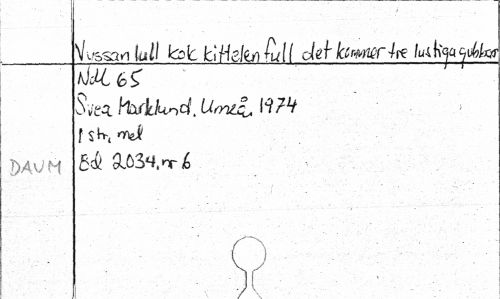 Vussan lull kok kittelen full det kommer tre lustiga gubbar
Ndl 65
Svea Marklund, Umeå, 1974
1 str, mel
DAUM Bd 2034, nr 6